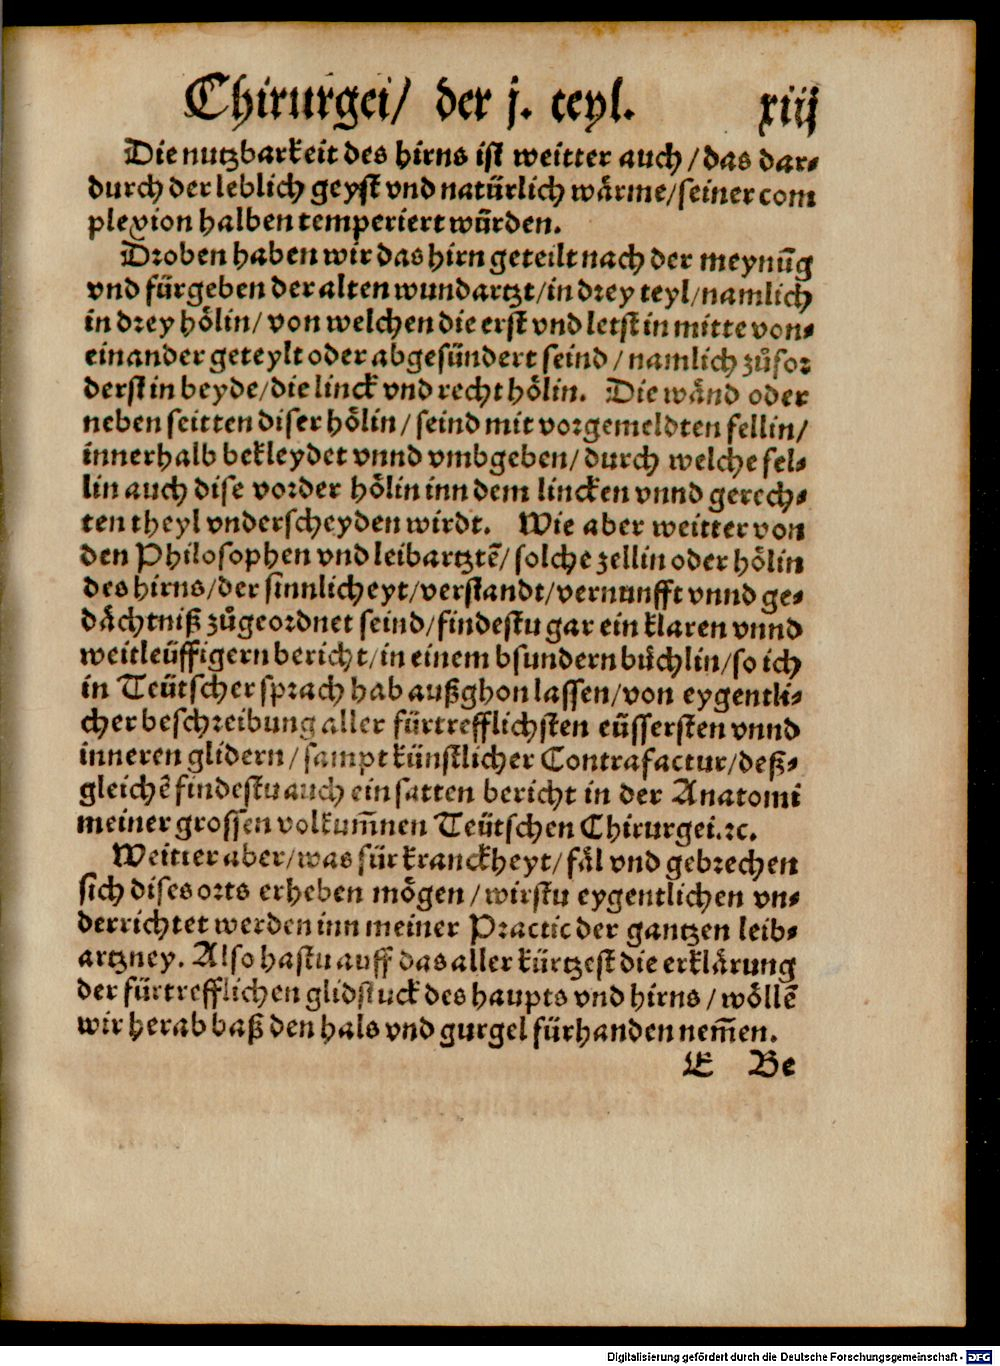 Chirurgei/ der j. teyl. xiij
Die nutzbarkeit des hirns ist weitter auch / das dar⸗
durch der leblich geyst vnd natürlich wärme/seiner com
plexion halben temperiert würden.
Droben haben wir das hirn geteilt nach der meynũg
vnd fürgeben der alten wundartzt/in drey teyl/namlich
in drey hölin/ von welchen die erst vnd letst in mitte von⸗
einander geteylt oder abgesündert seind / namlich zůfor
derst in beyde/die linck vnd recht hölin. Die wänd oder
neben seitten diser hölin / seind mit vorgemeldten fellin/
innerhalb bekleydet vnnd vmbgeben/durch welche fel⸗
lin auch dise vorder hölin inn dem lincken vnnd gerech⸗
ten theyl vnderscheyden wirdt. Wie aber weitter von
den Philosophen vnd leibartztẽ/ solche zellin oder hölin
des hirns/der sinnlicheyt/verstandt/vernunfft vnnd ge⸗
dächtniß zůgeordnet seind/findestu gar ein klaren vnnd
weitleüffigern bericht/in einem bsundern büchlin/so ich
in Teütscher sprach hab außghon lassen/von eygentli⸗
cher beschreibung aller fürtrefflichsten eüssersten vnnd
inneren glidern/ sampt künstlicher Contrafactur/deß⸗
gleichẽ findestu auch ein satten bericht in der Anatomi
meiner grossen volkum̃nen Teütschen Chirurgei.ꝛc.
Weitter aber/was für kranckheyt/fäl vnd gebrechen
sich dises orts erheben mögen / wirstu eygentlichen vn⸗
derrichtet werden inn meiner Practic der gantzen leib⸗
artzney. Also hastu auff das aller kürtzest die erklärung
der fürtrefflichen glidstuck des haupts vnd hirns / wöllẽ
wir herab baß den hals vnd gurgel fürhanden nem̃en.
E Be
Digitalisierung gefördert durch die Deutsche Forschungsgemeinschaft - DFG